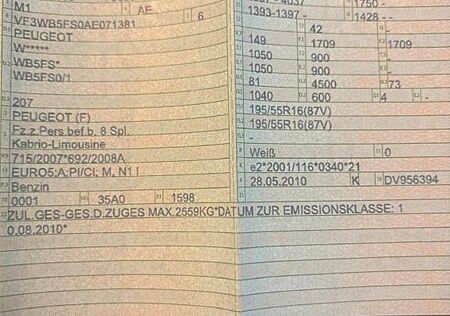 M1 AE
VF3WB5FS0AE071381 6
PEUGEOT
W*****
WB5FS*
WB5FS0/1
207
PEUGEOT (F)
Fz.z.Pers.bef.b. 8 Spl.
Kabrio-Limousine
715/2007*692/2008A
EURO5;A;PI/CI; M, N1 I
Benzin
0001 35A0 1598
4037 1750 -
1393-1397 - 1428 - -
42 -
149 1709 1709
1050 900 -
1050 900 -
81 4500 73
1040 600 4 -
195/55R16(87V)
195/55R16(87V)
-
Weiß 0
e2*2001/116*0340*21
28.05.2010 K DV956394
ZUL.GES-GES.D.ZUGES MAX.2559KG*DATUM ZUR EMISSIONSKLASSE: 1
0.08.2010*